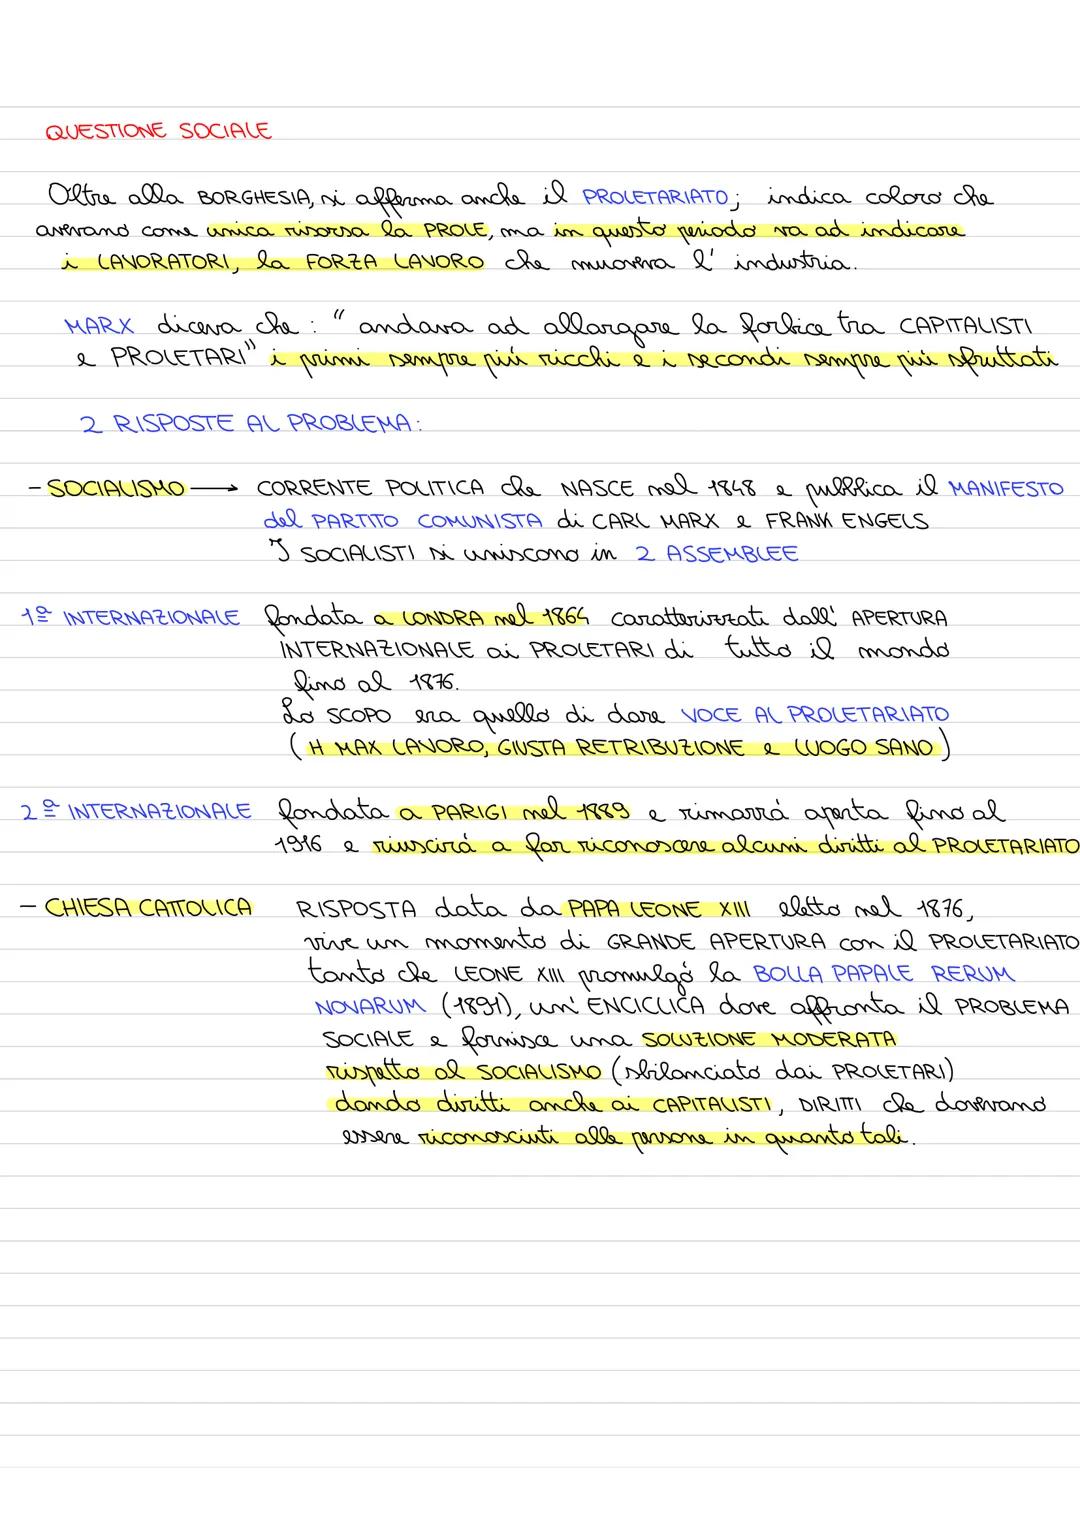 QUESTIONE SOCIALE
Oltre alla BORGHESIA, si afferma anche il PROLETARIATO; indica coloro che
avevano come unica risorsa la PROLE, ma in questo periodo va ad indicare
i LAVORATORI, la FORZA LAVORO che muoveva l' industria.
MARX diceva che : " andava ad allargare la forbice tra CAPITALISTI
e PROLETARI" i primi sempre più ricchi e i secondi sempre più sfruttati
2 RISPOSTE AL PROBLEMA:
- SOCIALISMO → CORRENTE POLITICA che NASCE nel 1848 e pubblica il MANIFESTO
del PARTITO COMUNISTA di CARL MARX e FRANK ENGELS
I SOCIALISTI si uniscono in 2 ASSEMBLEE
1ª INTERNAZIONALE fondata a LONDRA nel 1864 caratterizzati dall' APERTURA
INTERNAZIONALE ai PROLETARI di tutto il mondo
fino al 1876.
Lo SCOPO era quello di dare VOCE AL PROLETARIATO
( H MAX LAVORO, GIUSTA RETRIBUZIONE e LUOGO SANO )
2ª INTERNAZIONALE fondata a PARIGI nel 1889 e rimarrá aperta fino al
1916 e riuscirá a far riconoscere alcuni diritti al PROLETARIATO
- CHIESA CATTOLICA RISPOSTA data da PAPA LEONE XIII eletto nel 1876,
vive un momento di GRANDE APERTURA con il PROLETARIATO
tanto che LEONE XIII promulgó la BOLLA PAPALE RERUM
NOVARUM (1891), un' ENCICLICA dove affronta il PROBLEMA
SOCIALE e fornisce una SOLUZIONE MODERATA
rispetto al SOCIALISMO (sbilanciato dai PROLETARI)
dando diritti anche ai CAPITALISTI, DIRITTI che dovevano
essere riconosciuti alle persone in quanto tali.